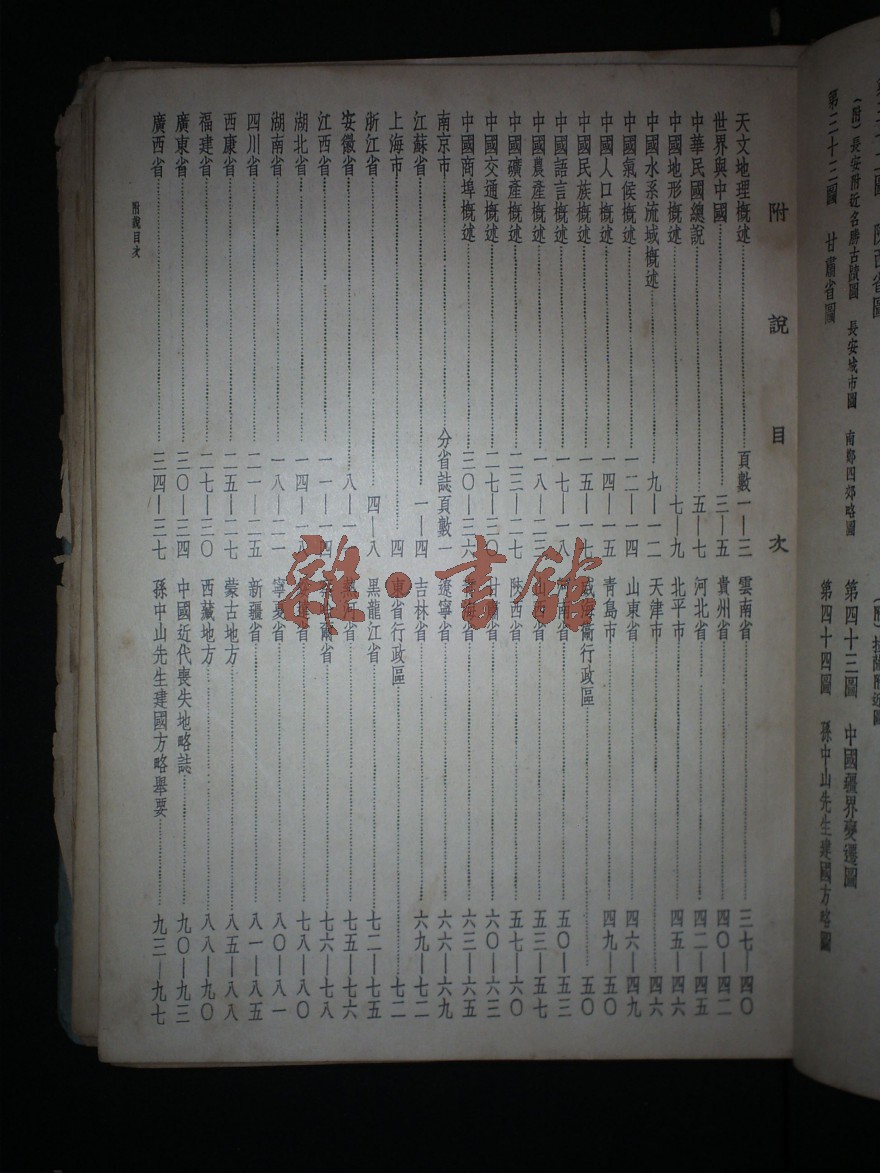 陝西省圖
(附)長安附近名勝古蹟圖 長安城市圖 南鄭四郊略圖
第三十三圖 甘肅省圖
第四十三圖 中國疆界變遷圖
第四十四圖 孫中山先生建國方略圖
附說目次
天文地理概述 頁數一—三
世界與中國 三—五
中華民國總說 五—七
中國地形概述 七—九
中國水系流域概述 九—一二
中國氣候概述 一二—一四
中國人口概述 一四—一五
中國民族概述 一五—一七
中國語言概述 一七—一八
中國農產概述 一八—二三
中國礦產概述 二三—二七
中國交通概述 二七—三〇
中國商埠概述 三〇—三六
南京市 分省誌頁數一
江蘇省 一—四
上海市 四
浙江省 四—八
安徽省 八—一一
江西省 一一—一四
湖北省 一四—一八
湖南省 一八—二一
四川省 二一—二五
西康省 二五—二七
福建省 二七—三〇
廣東省 三〇—三四
廣西省 三四—三七
雲南省 三七—四〇
貴州省 四〇—四二
河北省 四二—四五
北平市 四五—四六
天津市 四六
山東省 四六—四九
青島市 四九—五〇
威海衛行政區 五〇
河南省 五〇—五三
山西省 五三—五七
陝西省 五七—六〇
甘肅省 六〇—六三
青海省 六三—六六
遼寧省 六六—六九
吉林省 六九—七二
東省行政區 七二
黑龍江省 七二—七五
熱河省 七五—七六
察哈爾省 七六—七八
綏遠省 七八—八〇
寧夏省 八〇—八一
新疆省 八一—八五
蒙古地方 八五—八八
西藏地方 八八—九〇
中國近代喪失地略誌 九〇—九三
孫中山先生建國方略舉要 九三—九七
附說目次
雜·書館